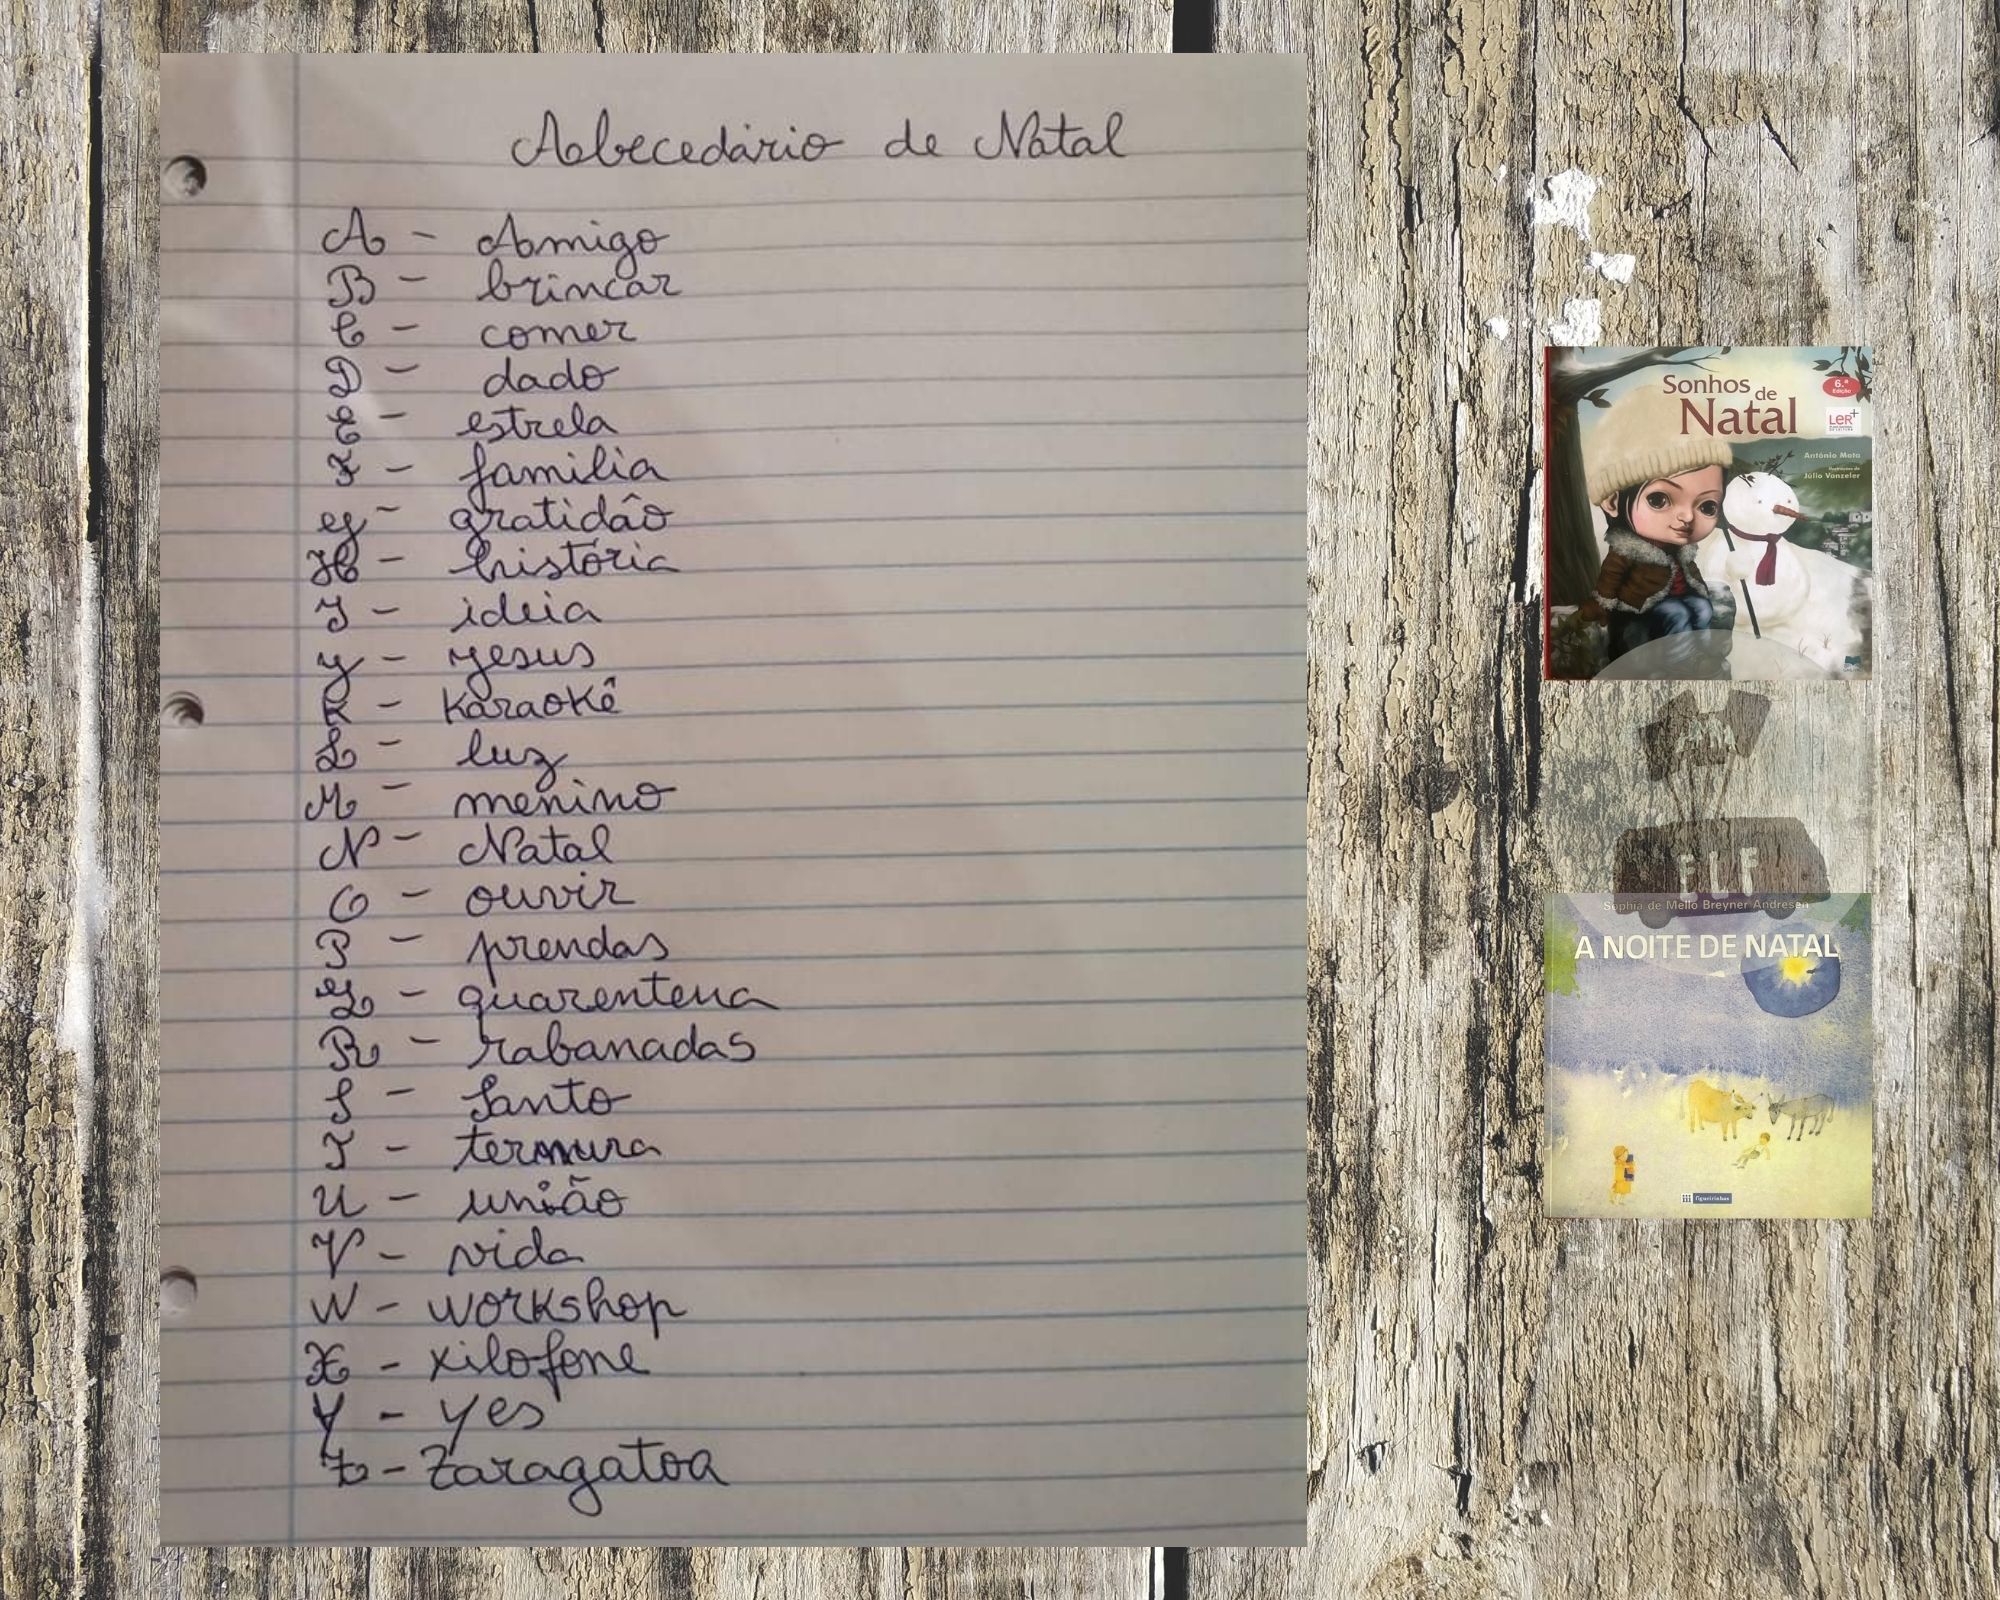 Abecedário de Natal
A - Amigo
B - brincar
C - comer
D - dado
E - estrela
F - família
G - gratidão
H - história
I - ideia
J - Jesus
K - karaokê
L - luz
M - menino
N - Natal
O - ouvir
P - prendas
Q - quarentena
R - rabanadas
S - Santo
T - ternura
U - união
V - vida
W - workshop
X - xilofone
Y - yes
Z - Zaragatoa
Sonhos de
Natal
6.ª
Edição
LER+
António Mota
Ilustrações de
Júlio Vanzeler
ELF
Sophia de Mello Breyner Andresen
A NOITE DE NATAL
figueirinhas